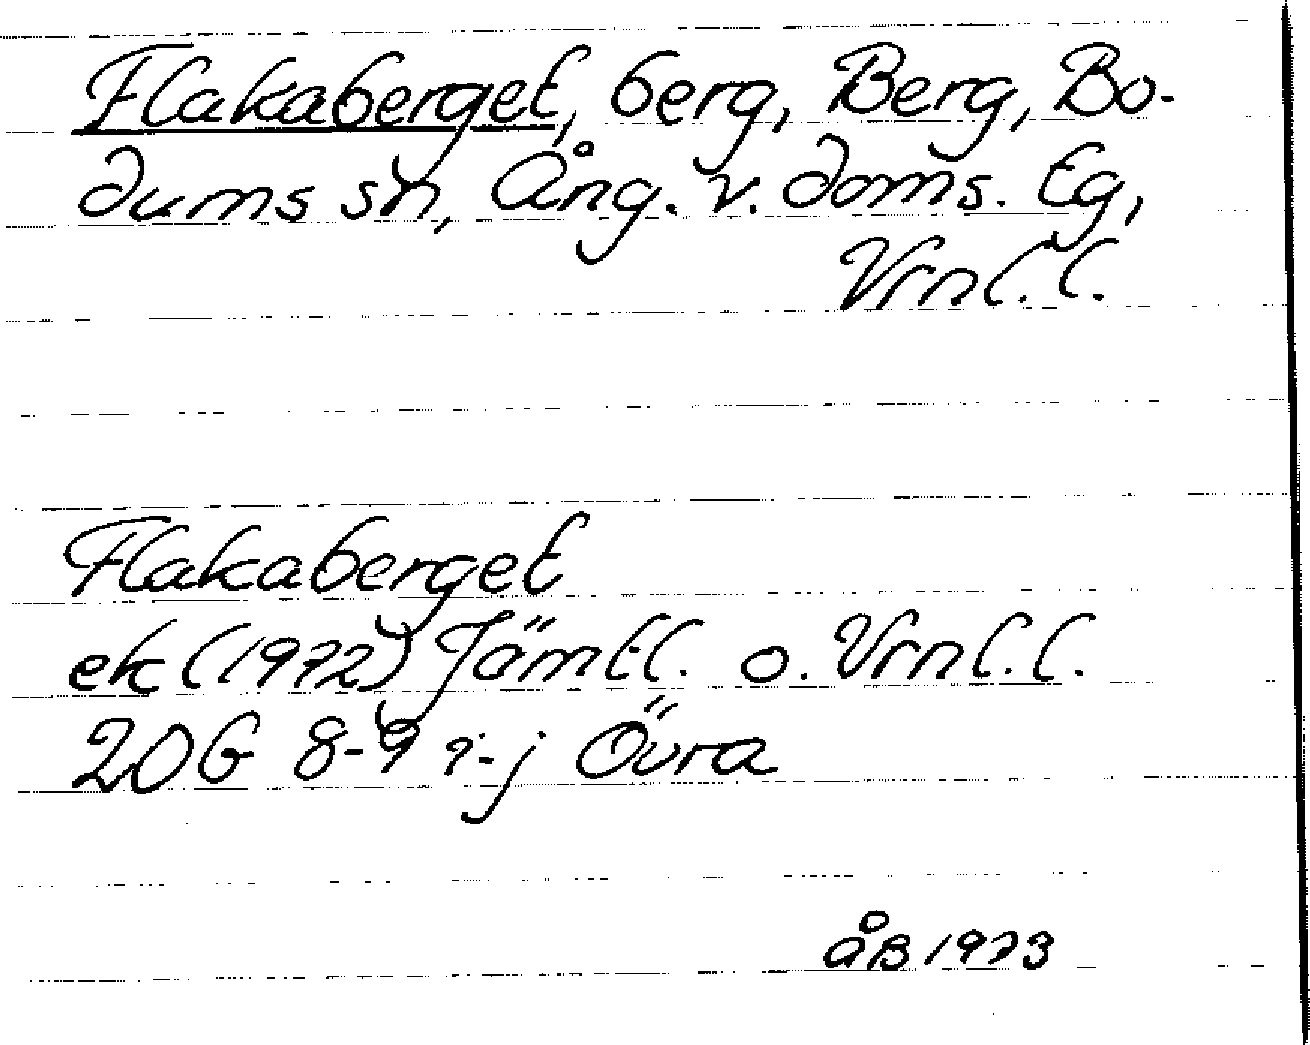 Flakaberget, berg, Berg, Bo-
dums sn, Ång. v. doms. tg,
Vrnl. l.
Flakaberget
ek (1972) Jämtl. o. Vrnl. l.
20G 8-9 i-j Övra
ÅB 1973